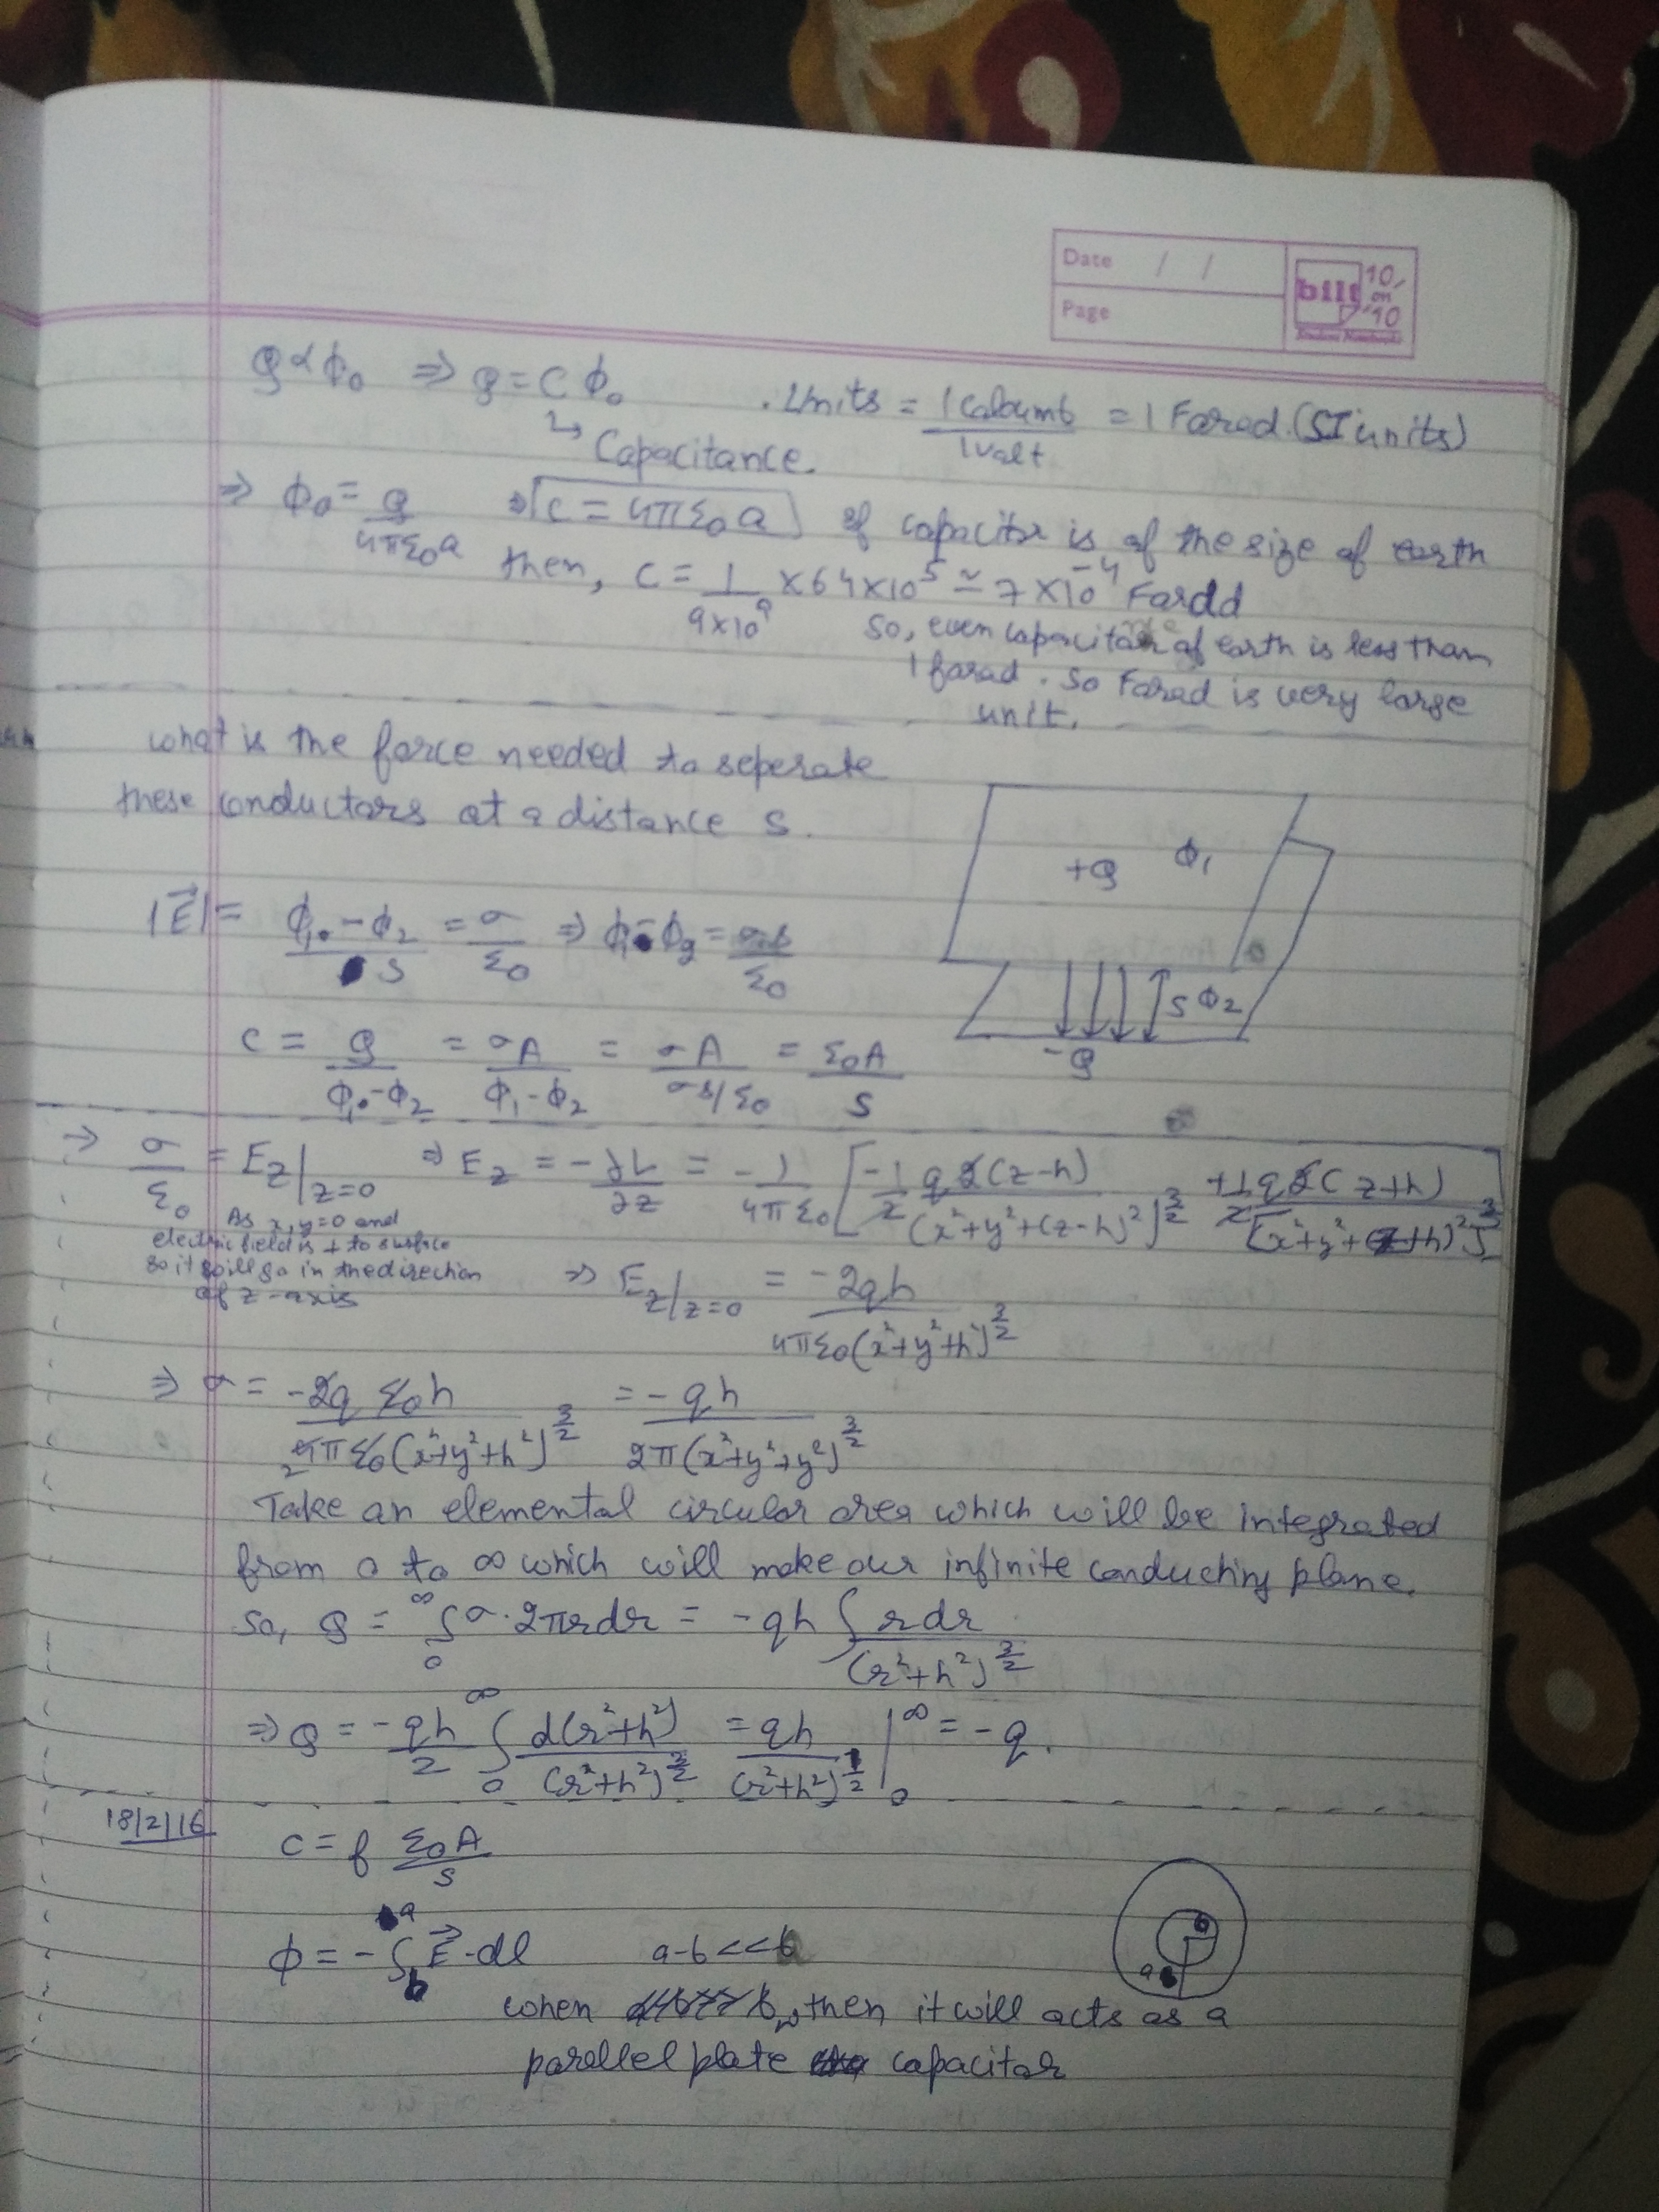 Date / /
Page
bilt 10 on 10
Student Notebooks
Q ∝ ϕ₀ ⇒ Q = C ϕ₀ . Units = 1 Caloumb / 1 Valt = 1 Farad. (SI units)
↳ Capacitance.
⇒ ϕ₀ = Q / 4πε₀a ⇒ C = 4πε₀a if capacitor is of the size of earth
then, C = 1 / 9×10⁹ × 64×10⁵ ≃ 7×10⁻⁴ Fardd
So, even capacitance of earth is less than
1 farad. So Farad is very large
unit.
what is the force needed to seperate
these conductors at a distance s.
+Q ϕ₁
|E⃗| = (ϕ₁ - ϕ₂) / s = σ / ε₀ ⇒ ϕ₁ - ϕ₂ = σs / ε₀
s ϕ₂
-Q
C = Q / (ϕ₁ - ϕ₂) = σA / (ϕ₁ - ϕ₂) = σA / (σs/ε₀) = ε₀A / s
→ σ / ε₀ = E_z|_z=0 ⇒ E_z = -∂V / ∂z = -1 / 4πε₀ [ -1/2 q2(z-h) / (x²+y²+(z-h)²)^3/2 + 1/2 q2(z+h) / [x²+y²+(z+h)²]^3/2 ]
As x,y=0 and
electric field is ⊥ to surface
so it will go in the direction
of z-axis
⇒ E_z|_z=0 = -2qh / 4πε₀(x²+y²+h²)^3/2
⇒ σ = -2q ε₀h / 4πε₀(x²+y²+h²)^3/2 = -qh / 2π(x²+y²+y²)^3/2
Take an elemental circular area which will be integrated
from 0 to ∞ which will make our infinite conducting plane.
So, Q = ∫₀^∞ σ·2πrdr = -qh ∫ rdr / (r²+h²)^3/2
⇒ Q = -qh / 2 ∫₀^∞ d(r²+h²) / (r²+h²)^3/2 = qh / (r²+h²)^1/2 |₀^∞ = -q.
18/2/16
C = f ε₀A / s
ϕ = -∫_b^a E⃗·dl a-b<<b
b
a
when then it will acts as a
parallel plate capacitor